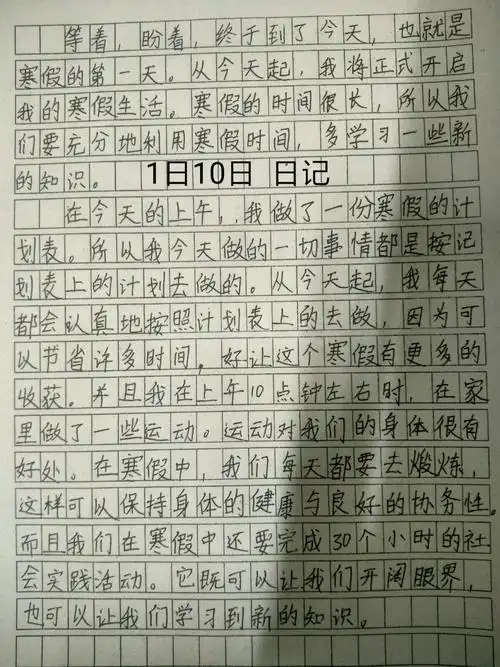 等着，盼着，终于到了今天，也就是
寒假的第一天。从今天起，我将正式开启
我的寒假生活。寒假的时间很长，所以我
们要充分地利用寒假时间，多学习一些新
的知识。 1日10日 日记
在今天的上午，我做了一份寒假的计
划表。所以我今天做的一切事情都是按记
划表上的计划去做的。从今天起，我每天
都会认真地按照计划表上的去做，因为可
以节省许多时间，好让这个寒假有更多的
收获。并且我在上午10点钟左右时，在家
里做了一些运动。运动对我们的身体很有
好处。在寒假中，我们每天都要去煅炼，
这样可以保持身体的健康与良好的协务性。
而且我们在寒假中还要完成30个小时的社
会实践活动。它既可以让我们开阔眼界，
也可以让我们学习到新的知识。